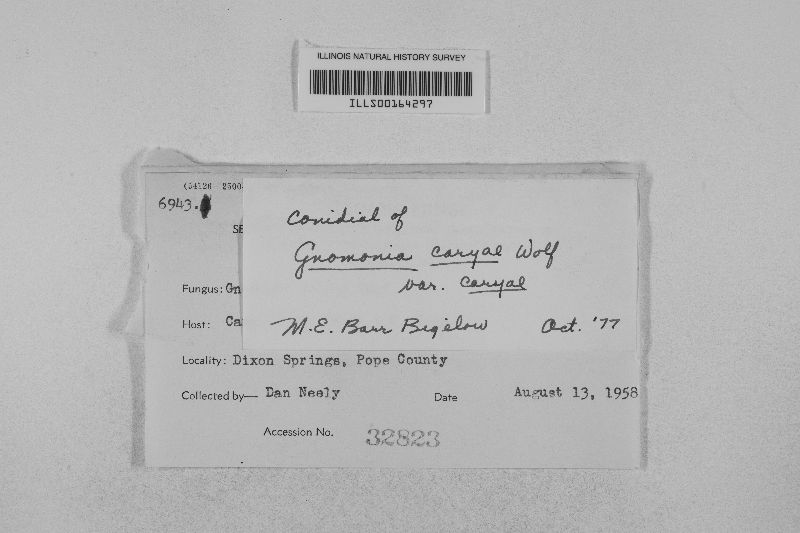 ILLINOIS NATURAL HISTORY SURVEY
ILLS00164297
(54126 2500
6943.
SE
conidial of
Gnomonia caryae Wolf
var. caryae
M.E. Barr Bigelow Oct. '77
Fungus: Gn
Host: Ca
Locality: Dixon Springs, Pope County
Collected by— Dan Neely Date August 13, 1958
Accession No. 32823